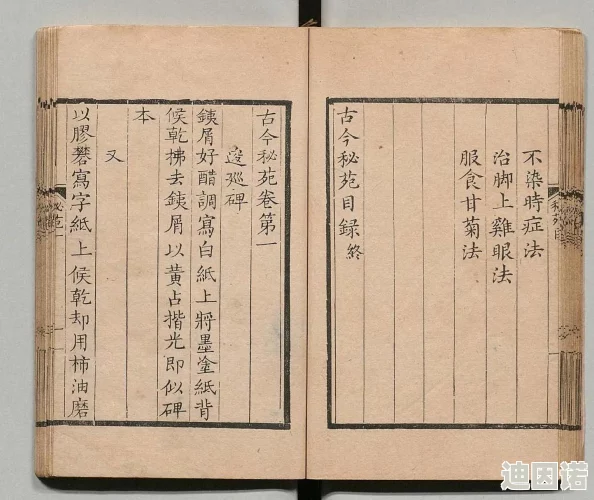 不染時症法
治脚上雞眼法
服食甘菊法
古今秘苑目録終
古今秘苑卷第一
逡廵碑
鉄屑好醋調寫白紙上將墨塗紙背
候乾拂去鉄屑以黃占揩光即似碑
本
又
以膠礬寫字紙上候乾却用柿油磨
秘苑目
秘苑一
迪因诺